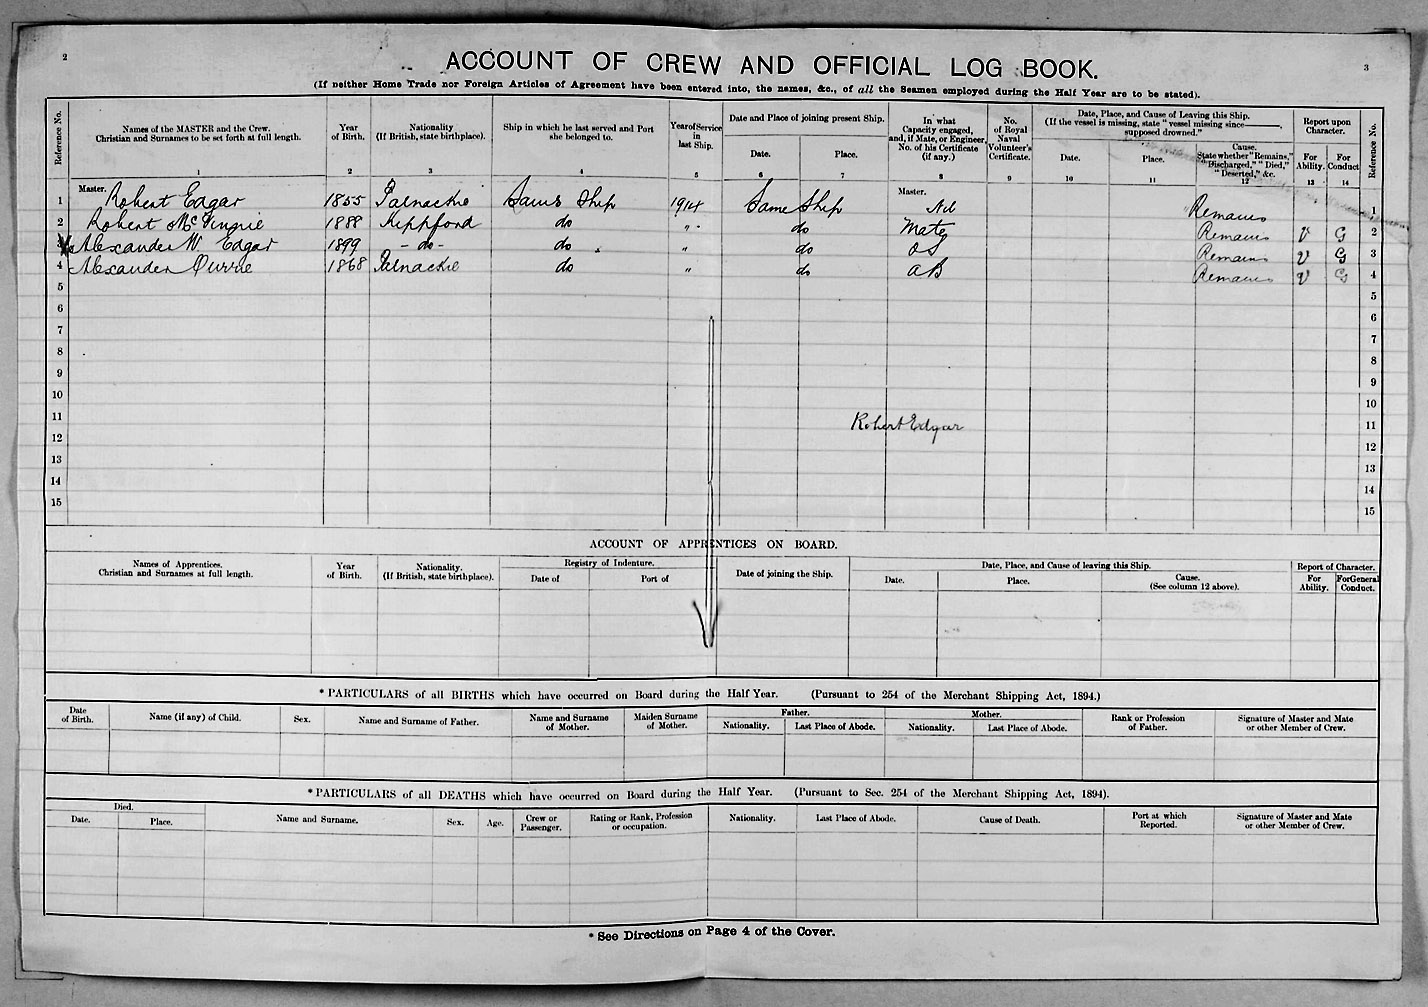 2
3
ACCOUNT OF CREW AND OFFICIAL LOG BOOK.
(If neither Home Trade nor Foreign Articles of Agreement have been entered into, the names, &c., of all the Seamen employed during the Half Year are to be stated).
Reference No.
Names of the MASTER and the Crew. Christian and Surnames to be set forth at full length. 1
Year of Birth. 2
Nationality (If British, state birthplace). 3
Ship in which he last served and Port she belonged to. 4
Year of Service in last Ship. 5
Date and Place of joining present Ship.
Date. 6
Place. 7
In what Capacity engaged, and, if Mate, or Engineer, No. of his Certificate (if any.) 8
No. of Royal Naval Volunteer's Certificate. 9
Date, Place, and Cause of Leaving this Ship. (If the vessel is missing, state "vessel missing since———, supposed drowned."
Date. 10
Place. 11
Cause. State whether "Remains," "Discharged," "Died," "Deserted," &c. 12
Report upon Character.
For Ability. 13
For Conduct 14
Reference No.
1 Master. Robert Edgar 1855 Palnackie Same Ship 1914 Same Ship Master. Nil Remains 1
2 Robert 1888 Kippford do " do Mate Remains V G 2
3 Alexander W. Edgar 1899 - do - do " do OS Remains V G 3
4 Alexander 1868 Palnackie do " do AB Remains V G 4
5 5
6 6
7 7
8 8
9 9
10 10
11 Robert Edgar 11
12 12
13 13
14 14
15 15
ACCOUNT OF APPRENTICES ON BOARD.
Names of Apprentices. Christian and Surnames at full length.
Year of Birth.
Nationality. (If British, state birthplace).
Registry of Indenture.
Date of
Port of
Date of joining the Ship.
Date, Place, and Cause of leaving this Ship.
Date.
Place.
Cause. (See column 12 above).
Report of Character.
For Ability.
For General Conduct.
* PARTICULARS of all BIRTHS which have occurred on Board during the Half Year. (Pursuant to 254 of the Merchant Shipping Act, 1894.)
Date of Birth.
Name (if any) of Child.
Sex.
Name and Surname of Father.
Name and Surname of Mother.
Maiden Surname of Mother.
Father.
Nationality.
Last Place of Abode.
Mother.
Nationality.
Last Place of Abode.
Rank or Profession of Father.
Signature of Master and Mate or other Member of Crew.
* PARTICULARS of all DEATHS which have occurred on Board during the Half Year. (Pursuant to Sec. 254 of the Merchant Shipping Act, 1894).
Died.
Date.
Place.
Name and Surname.
Sex.
Age.
Crew or Passenger.
Rating or Rank, Profession or occupation.
Nationality.
Last Place of Abode.
Cause of Death.
Port at which Reported.
Signature of Master and Mate or other Member of Crew.
* See Directions on Page 4 of the Cover.